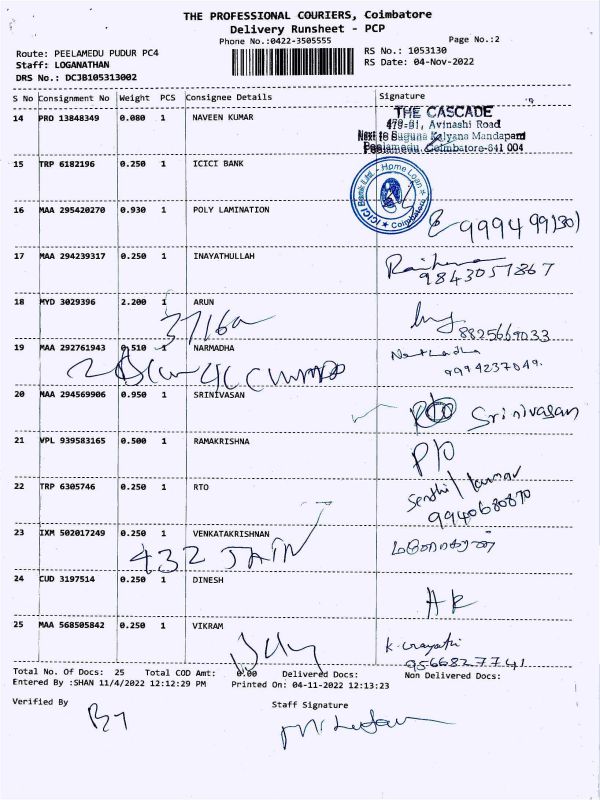 THE PROFESSIONAL COURIERS, Coimbatore
Delivery Runsheet - PCP
Phone No.:0422-3505555
Page No.:2
Route: PEELAMEDU PUDUR PC4
RS No.: 1053130
Staff: LOGANATHAN
RS Date: 04-Nov-2022
DRS No.: DCJB105313002
S No Consignment No Weight PCS Consignee Details Signature
14 PRO 13848349 0.080 1 NAVEEN KUMAR
THE CASCADE
479-81, Avinashi Road
Next to Suguna Kalyana Mandapam
Peelamedu, Coimbatore-641 004
15 TRP 6182196 0.250 1 ICICI BANK
ICICI Bank Ltd. - Home Loan
★ Coimbatore ★
16 MAA 295420270 0.930 1 POLY LAMINATION
17 MAA 294239317 0.250 1 INAYATHULLAH
9843057867
18 MYD 3029396 2.200 1 ARUN
8825669033
19 MAA 292761943 0.510 1 NARMADHA
9994237049.
20 MAA 294569906 0.950 1 SRINIVASAN
Srinivasan
21 VPL 939583165 0.500 1 RAMAKRISHNA
P/O
22 TRP 6305746 0.250 1 RTO
Senthil kumar
9940680870
23 IXM 502017249 0.250 1 VENKATAKRISHNAN
432 JAIN
24 CUD 3197514 0.250 1 DINESH
AK
25 MAA 568505842 0.250 1 VIKRAM
9566827741
Total No. Of Docs: 25 Total COD Amt: 0.00 Delivered Docs: Non Delivered Docs:
Entered By :SHAN 11/4/2022 12:12:29 PM Printed On: 04-11-2022 12:13:23
Verified By
Staff Signature